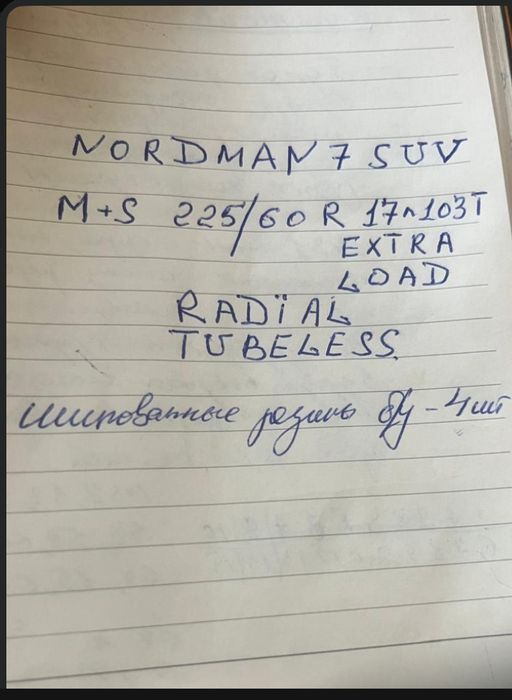 NORDMAN 7 SUV
M+S 225/60 R 17^103T
EXTRA
LOAD
RADIAL
TUBELESS.
Шипованные резины б/у - 4 шт